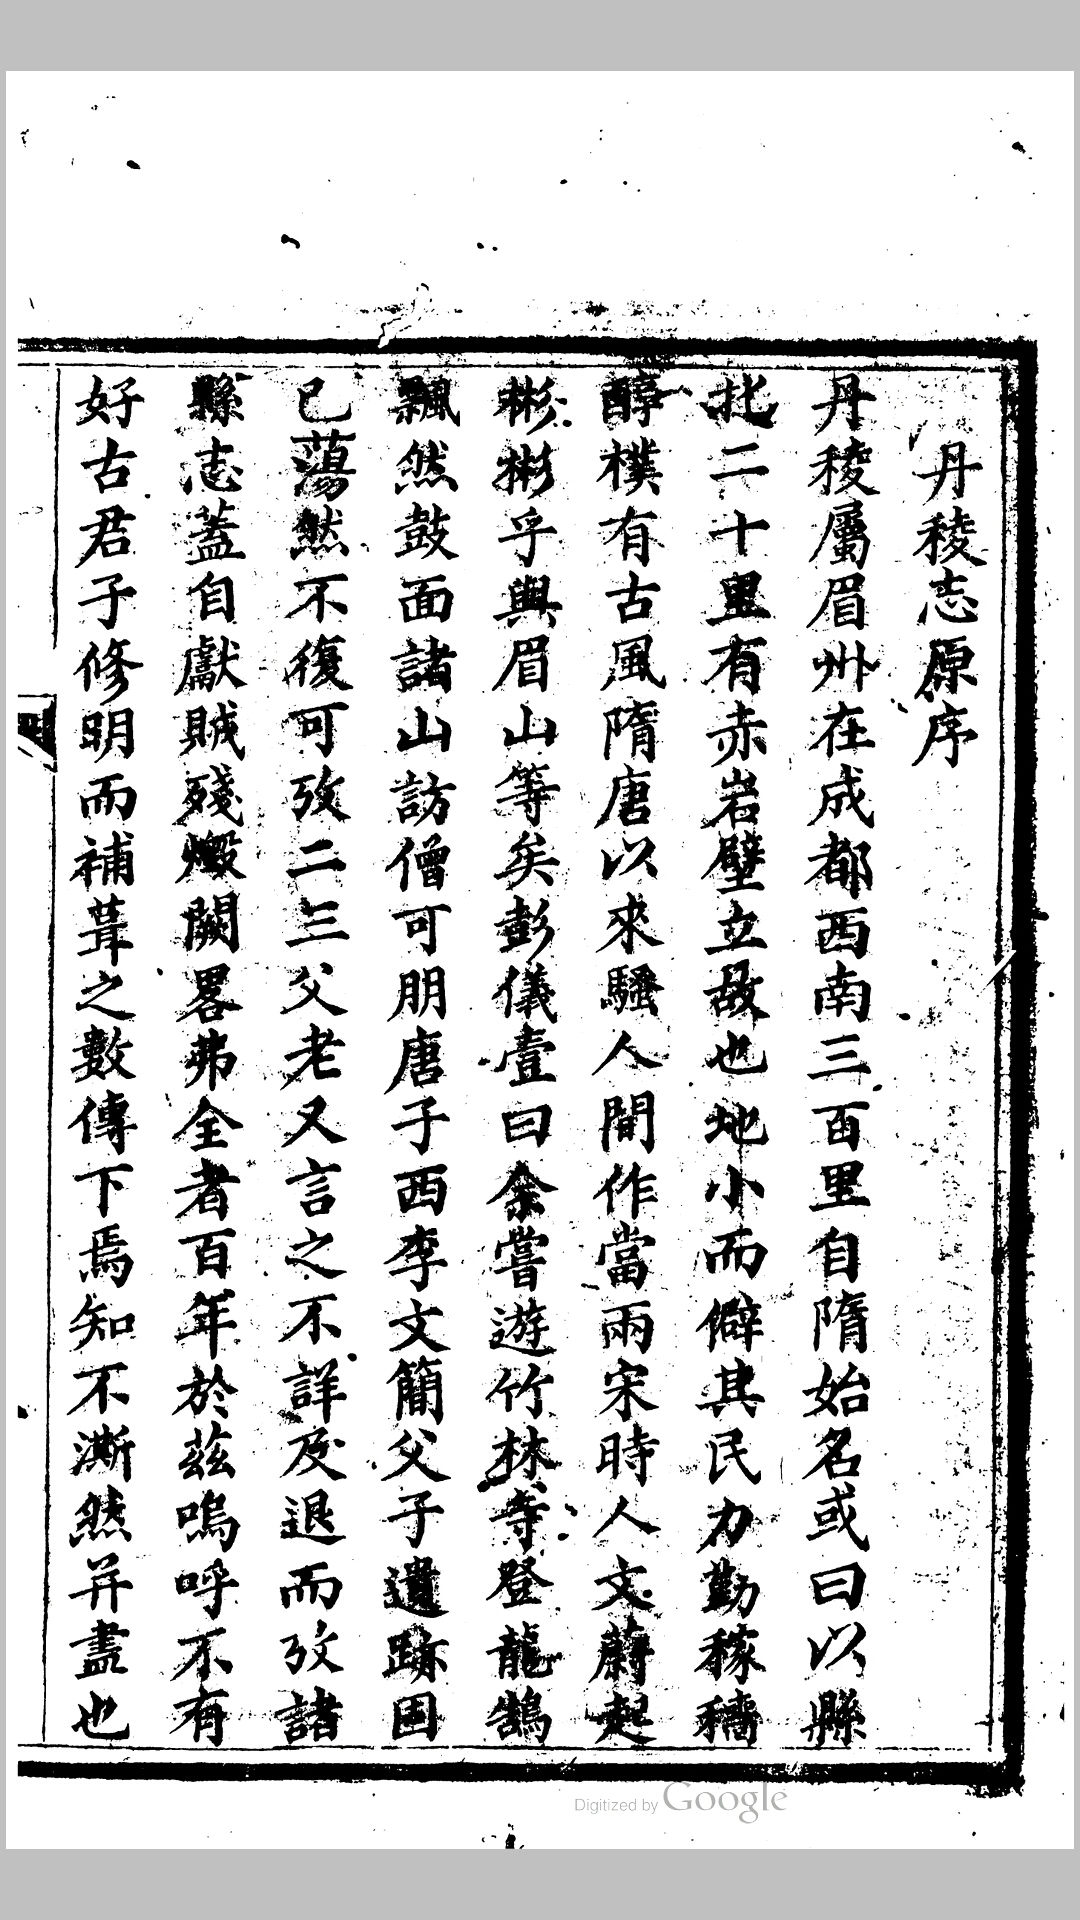 丹稜志原序
丹稜屬眉州在成都西南三百里自隋始名或曰以縣
北二十里有赤岩壁立故也地小而僻其民力勤稼穡
醇樸有古風隋唐以來騷人間作當兩宋時人文蔚起
彬彬乎與眉山等矣彭儀壹曰余嘗遊竹林寺登龍鵠
飄然鼓面諸山訪僧可朋唐子西李文簡父子遺跡固
已蕩然不復可攷二三父老又言之不詳及退而攷諸
縣志蓋自獻賊殘燬闕畧弗全者百年於茲嗚呼不有
好古君子修明而補葺之數傳下焉知不澌然并盡也
Digitized by Google